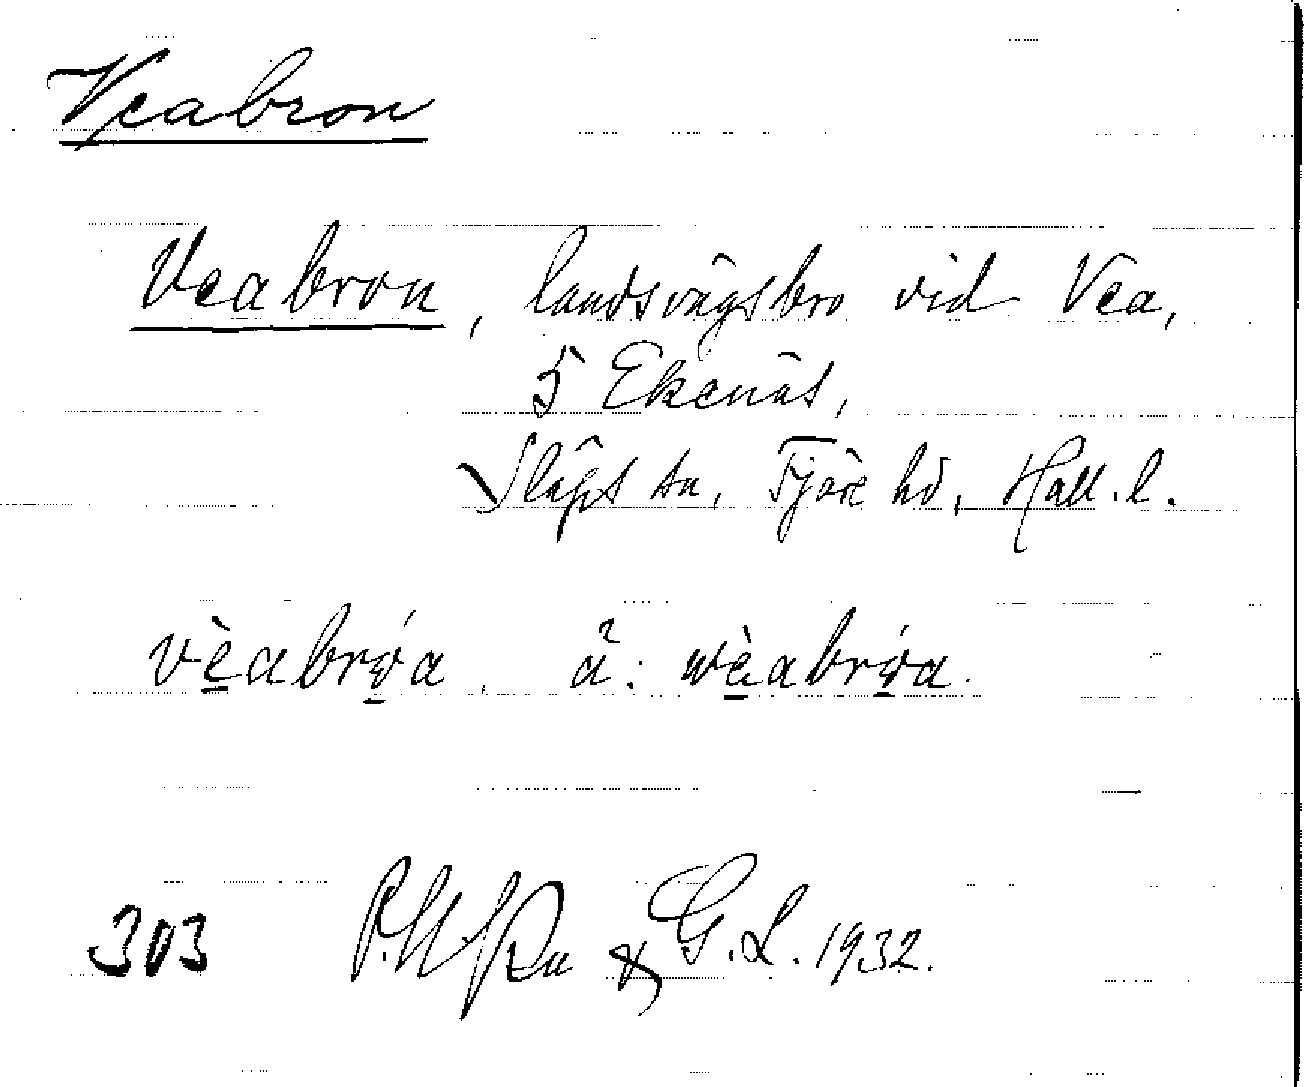 Veabron
Veabron, landsvägsbro vid Vea,
5 Ekenäs,
Släps sn, Fjäre hd, Hall. l.
vèabrǿa. ä: wèabrǿa.
303 & G.L. 1932.